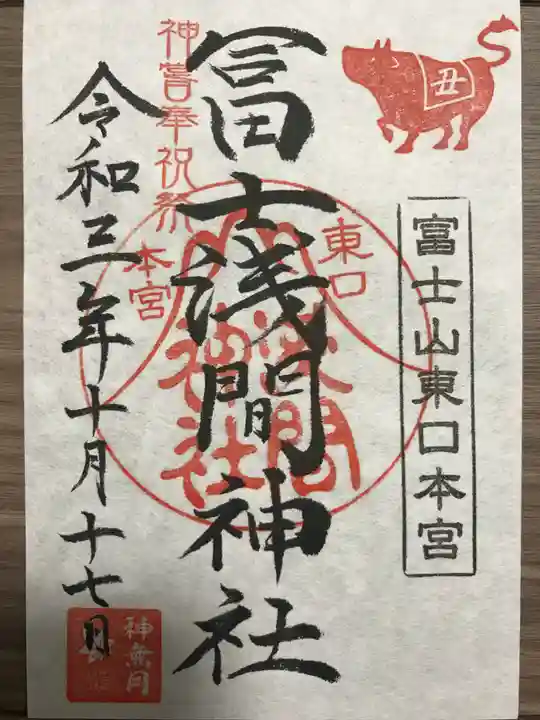 丑
富士山東口本宮
東口
本宮
浅間
神社
冨士浅間神社
神嘗奉祝祭
令和三年十月十七日
神無月